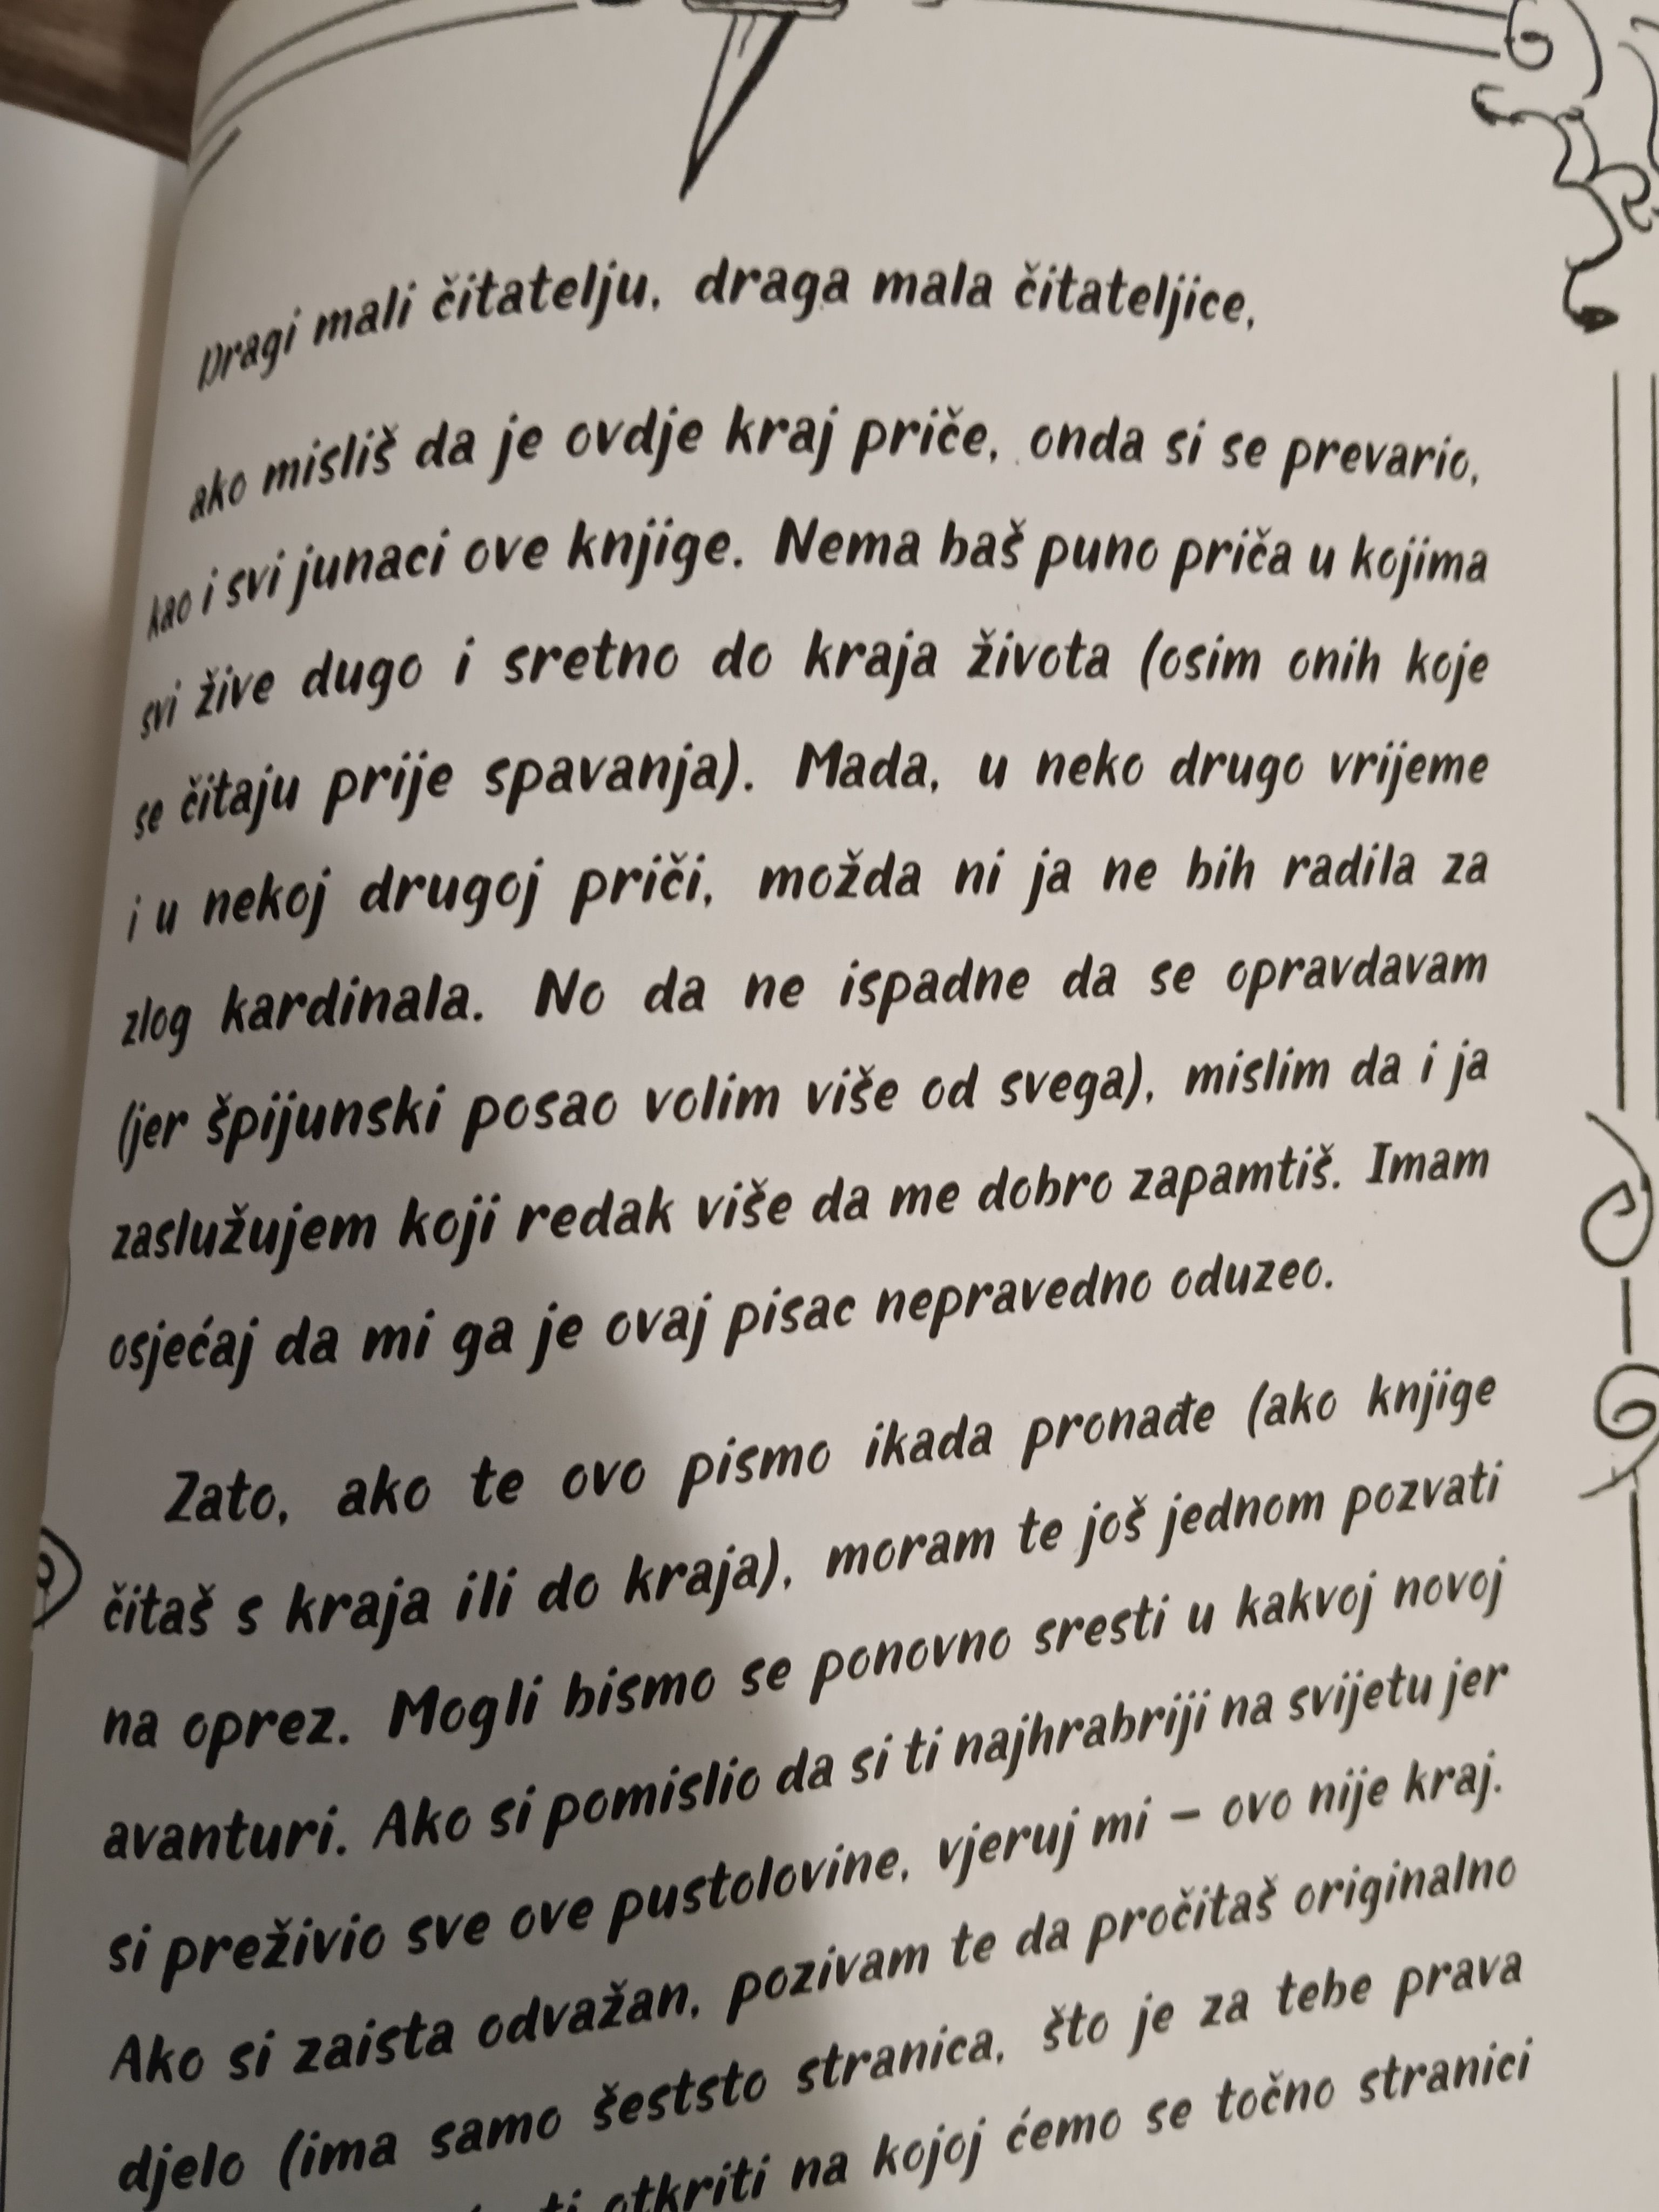 Dragi mali čitatelju, draga mala čitateljice,
ako misliš da je ovdje kraj priče, onda si se prevario,
kao i svi junaci ove knjige. Nema baš puno priča u kojima
svi žive dugo i sretno do kraja života (osim onih koje
se čitaju prije spavanja). Mada, u neko drugo vrijeme
i u nekoj drugoj priči, možda ni ja ne bih radila za
zlog kardinala. No da ne ispadne da se opravdavam
(jer špijunski posao volim više od svega), mislim da i ja
zaslužujem koji redak više da me dobro zapamtiš. Imam
osjećaj da mi ga je ovaj pisac nepravedno oduzeo.
Zato, ako te ovo pismo ikada pronađe (ako knjige
čitaš s kraja ili do kraja), moram te još jednom pozvati
na oprez. Mogli bismo se ponovno sresti u kakvoj novoj
avanturi. Ako si pomislio da si ti najhrabriji na svijetu jer
si preživio sve ove pustolovine, vjeruj mi – ovo nije kraj.
Ako si zaista odvažan, pozivam te da pročitaš originalno
djelo (ima samo šeststo stranica, što je za tebe prava
otkriti na kojoj ćemo se točno stranici